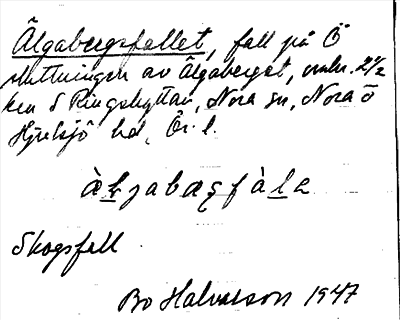 Älgabergsfallet, fall på Ö
sluttningen av Älgaberget, omkr. 2 1/2
km S Ringshyttan, Nora sn, Nora o
Hjulsjö hd, Ör. l.
Skogsfall
Bo Halvarsson 1947